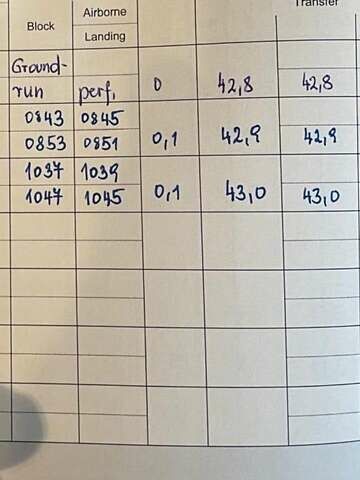 Transfer
Airborne
Block
Landing
Ground-
run perf. 0 42,8 42,8
0843 0845
0853 0851 0,1 42,9 42,9
1037 1039
1047 1045 0,1 43,0 43,0